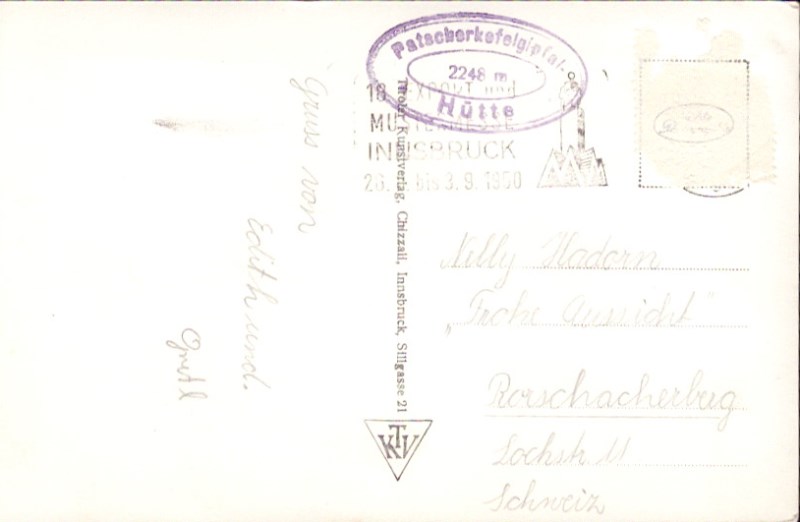 Gruss von
Edith und.
Gretl
Patscherkofelgipfel-
2248 m
Hütte
18. EXPORT und
MUSTERMESSE
INNSBRUCK
26. 8. bis 3. 9. 1950
Tiroler Kunstverlag, Chizzali, Innsbruck, Sillgasse 21
TKV
Nelly Hadorn
„Frohe Aussicht"
Rorschacherberg
Schweiz